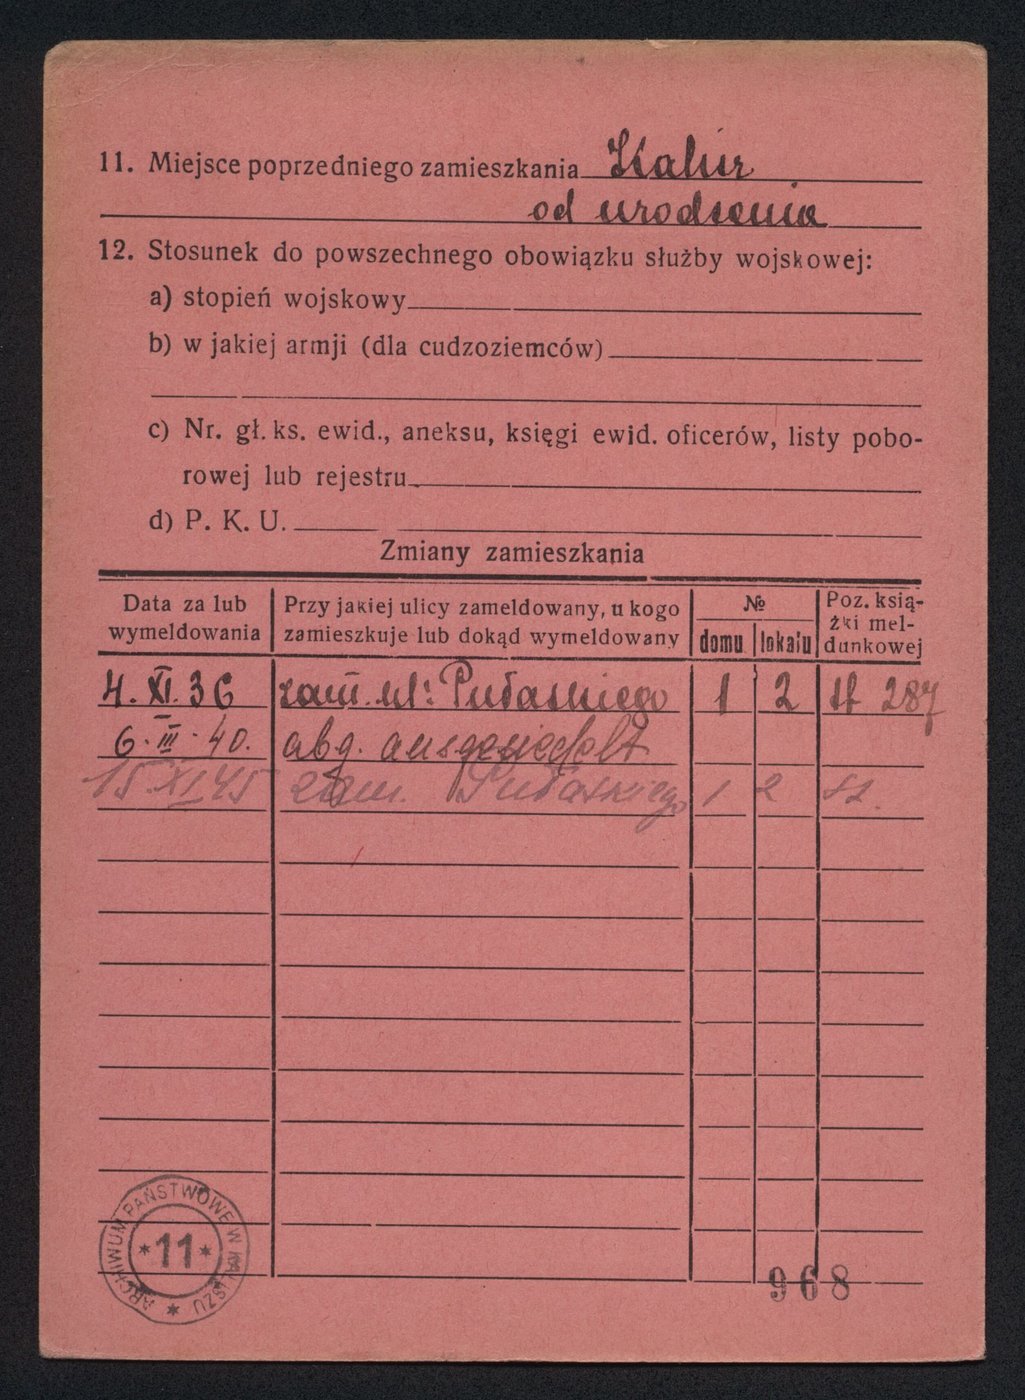 11. Miejsce poprzedniego zamieszkania Kalisz
od urodzenia
12. Stosunek do powszechnego obowiązku służby wojskowej:
a) stopień wojskowy
b) w jakiej armji (dla cudzoziemców)
c) Nr. gł. ks. ewid., aneksu, księgi ewid. oficerów, listy pobo-
rowej lub rejestru
d) P. K. U.
Zmiany zamieszkania
Data za lub wymeldowania Przy jakiej ulicy zameldowany, u kogo zamieszkuje lub dokąd wymeldowany № domu lokalu Poz. ksią-żki mel-dunkowej
4. XI. 36 zam. ul: Pułaskiego 1 2 st 287
6. III. 40. abg. ausgesiedelt
15 XI 45 zam. Pułaskiego 1 2 st.
ARCHIWUM PAŃSTWOWE W KALISZU
* 11 *
968